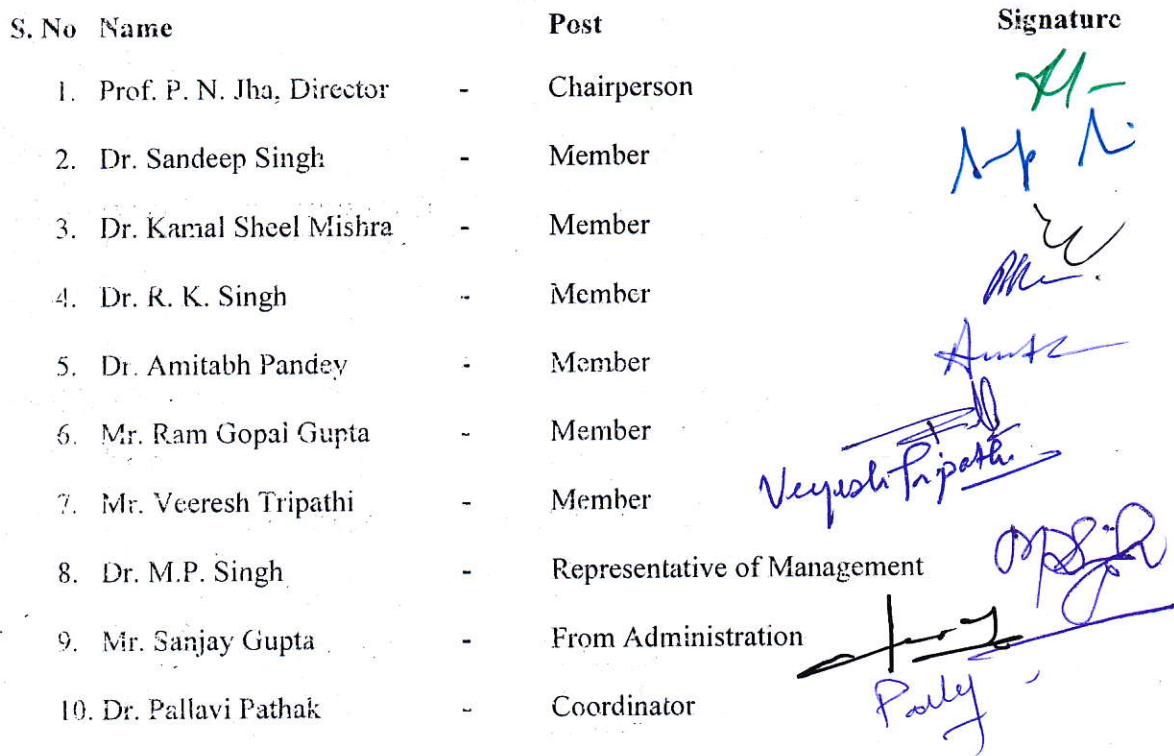 S. No Name Post Signature
1. Prof. P. N. Jha, Director - Chairperson
2. Dr. Sandeep Singh - Member
3. Dr. Kamal Sheel Mishra - Member
4. Dr. R. K. Singh - Member
5. Dr. Amitabh Pandey - Member
6. Mr. Ram Gopal Gupta - Member
7. Mr. Veeresh Tripathi - Member Veeresh Tripathi
8. Dr. M.P. Singh - Representative of Management MPSingh
9. Mr. Sanjay Gupta - From Administration
10. Dr. Pallavi Pathak - Coordinator